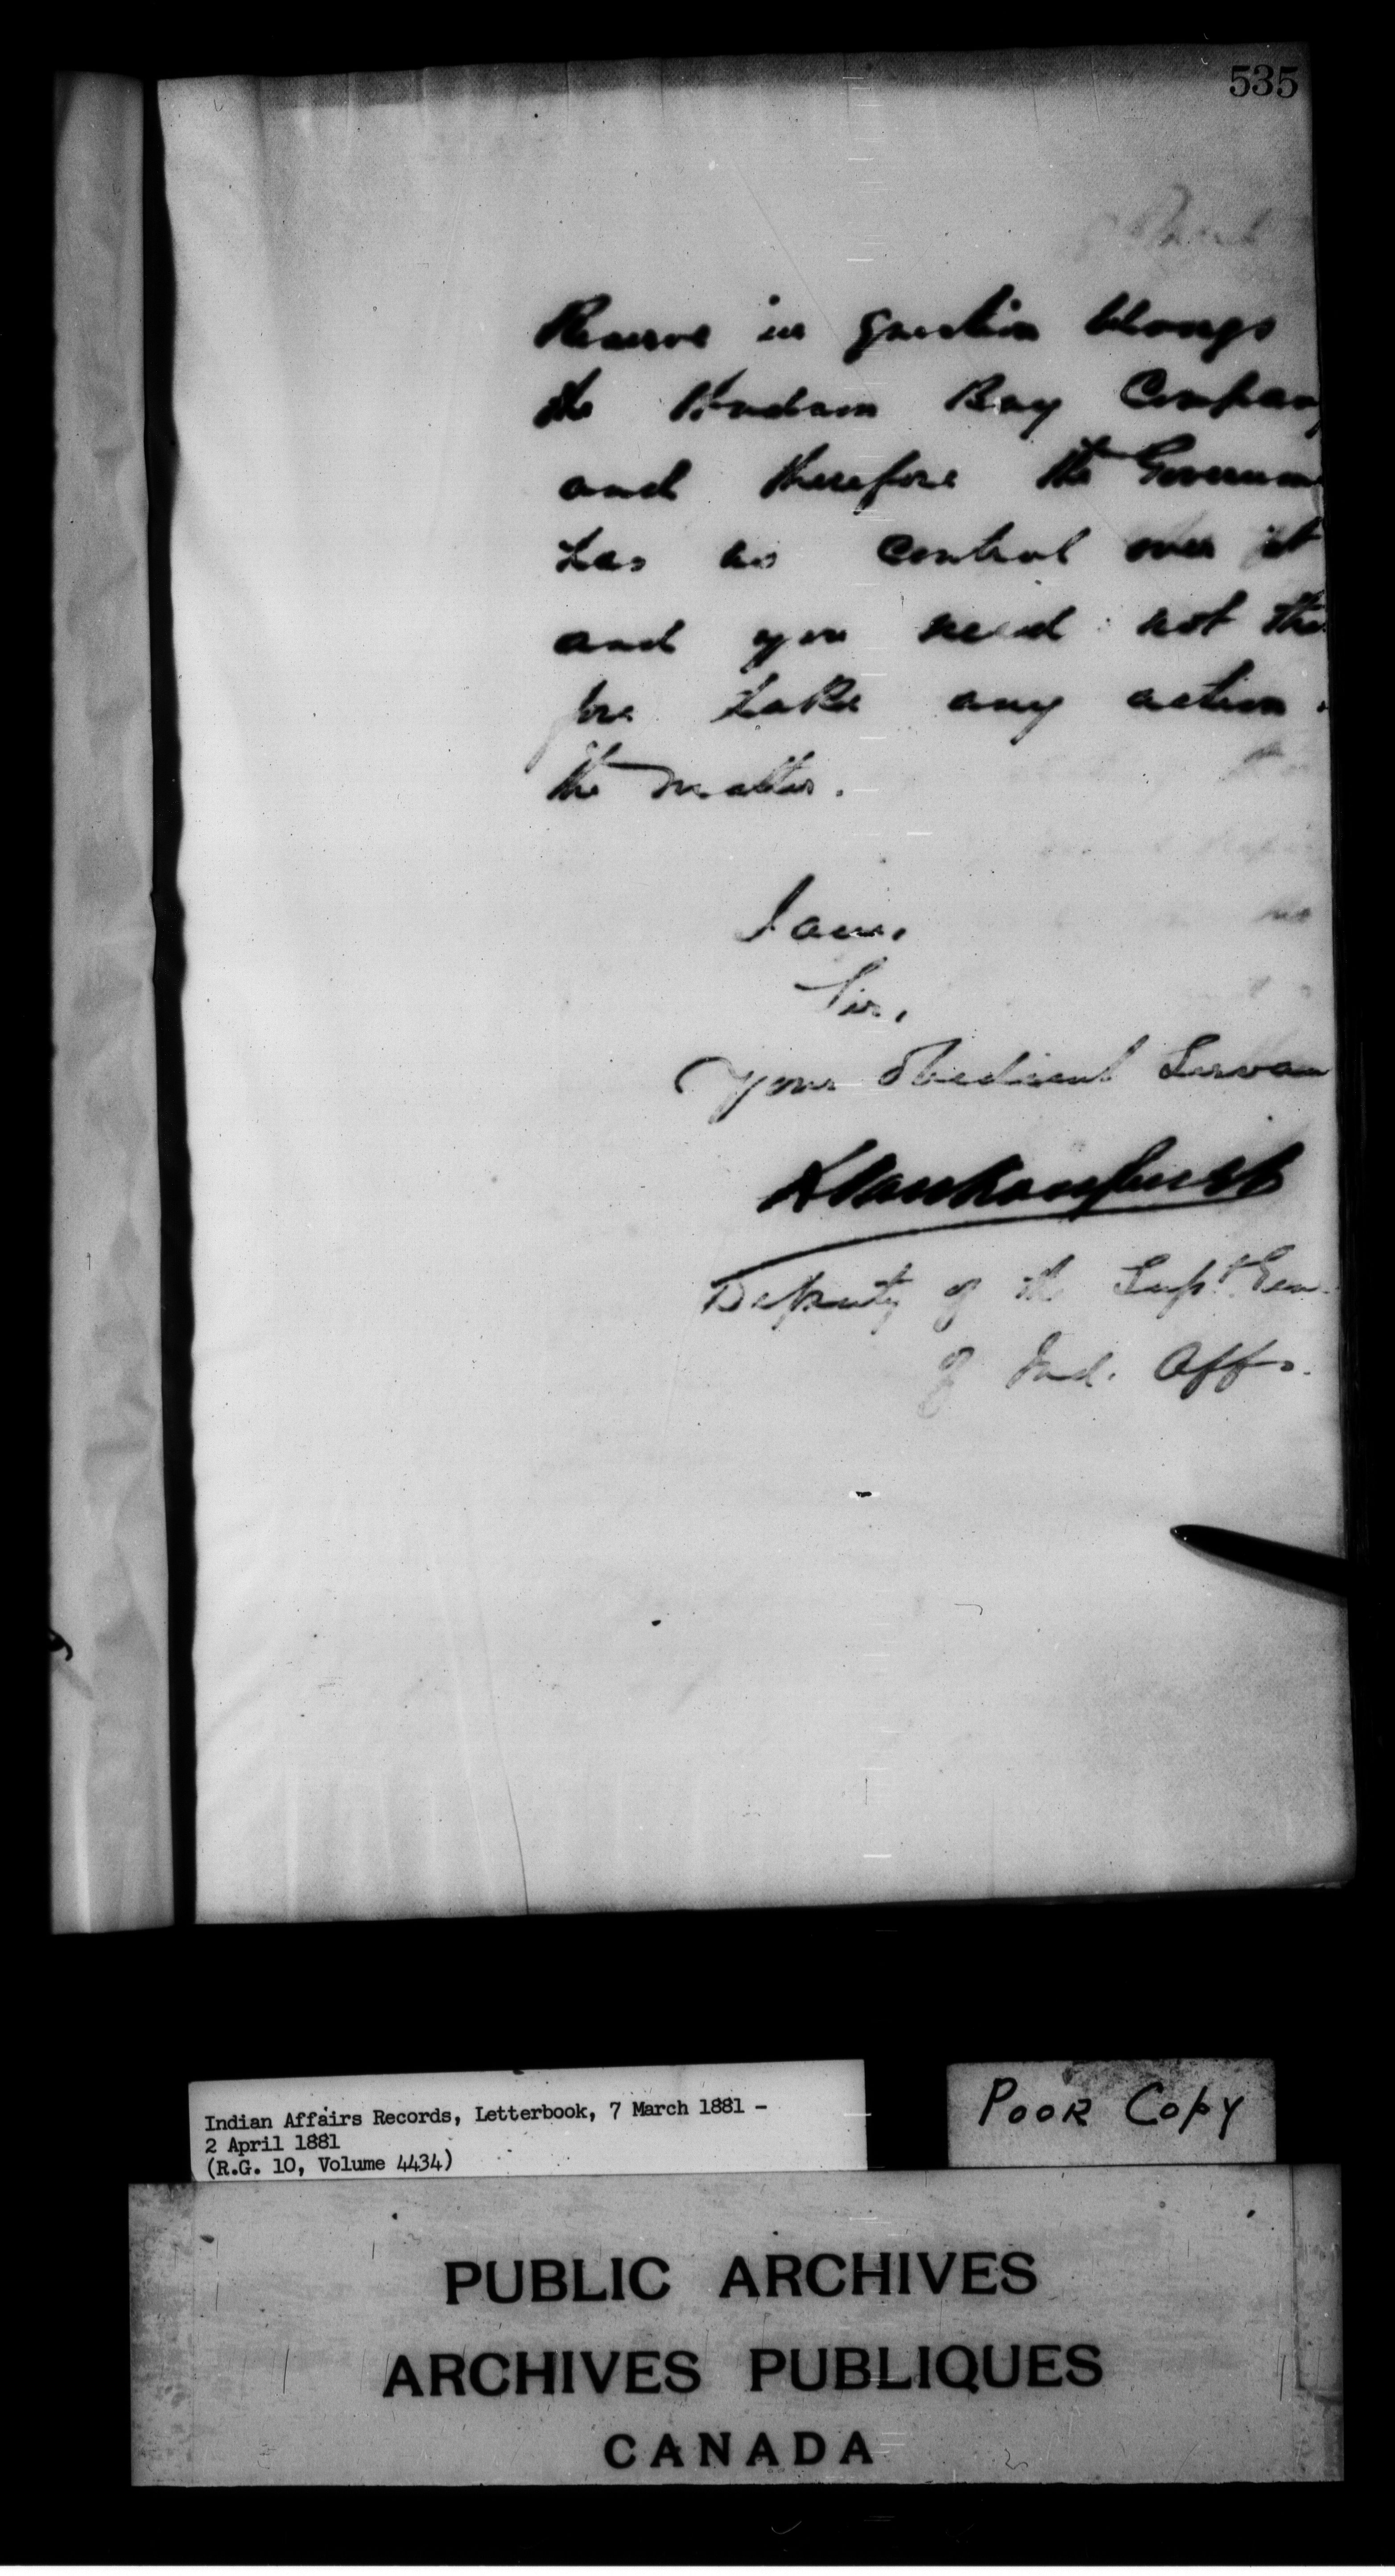 535
Reserve in question belongs
the Hudson Bay Company
and therefore the Governm
has no control over it
and you need not the
fore take any action
the matter.
I am,
Sir,
Your Obedient Servan
L Vankoughnet
Deputy of the Supt. Gen.
of Ind. Affs.
Indian Affairs Records, Letterbook, 7 March 1881 -
2 April 1881
(R.G. 10, Volume 4434)
POOR COPY
PUBLIC ARCHIVES
ARCHIVES PUBLIQUES
CANADA